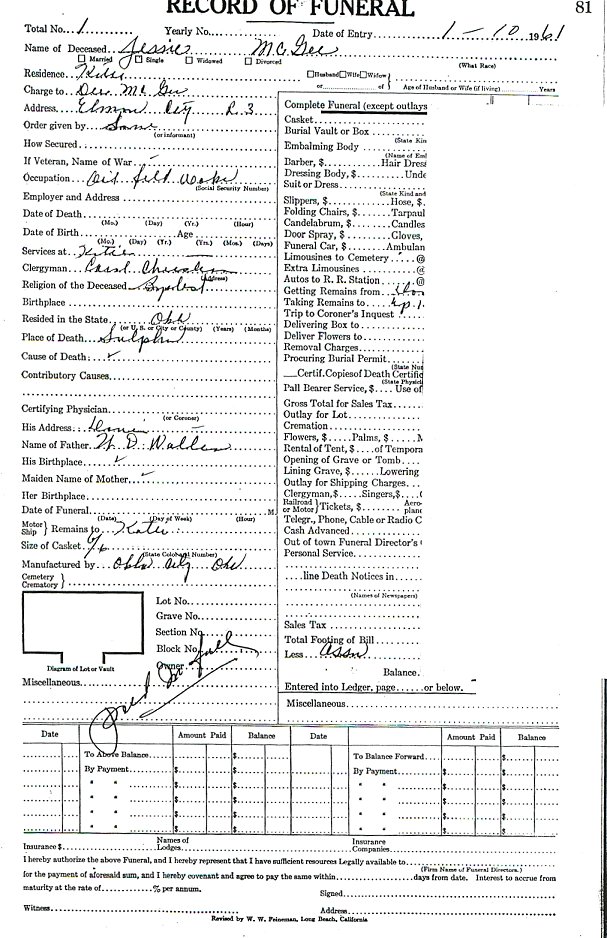 RECORD OF FUNERAL
81
Total No. 1 Yearly No. Date of Entry 1-10 1961
Name of Deceased Jessie McGee
Married Single Widowed Divorced (What Race)
Residence
Husband Wife Widow
or of Age of Husband or Wife (if living) Years
Charge to Mc Gee
Address Elmore City R. 3
Order given by Same
(or informant)
How Secured
If Veteran, Name of War -
Occupation Oil field Worker
(Social Security Number)
Employer and Address
Date of Death
(Mo.) (Day) (Yr.) (Hour)
Date of Birth Age
(Mo.) (Day) (Yr.) (Yrs.) (Mos.) (Days)
Services at Katie
Clergyman Carol
(Address)
Religion of the Deceased Baptist
Birthplace
Resided in the State Okla
(or U. S. or City or County) (Years) (Months)
Place of Death Sulphur
Cause of Death ✓
Contributory Causes
Certifying Physician
(or Coroner)
His Address
Name of Father W. D.
His Birthplace ✓
Maiden Name of Mother
Her Birthplace
Date of Funeral M.
(Date) (Day of Week) (Hour)
Motor Ship } Remains to Katie
Size of Casket 6/6
(State Color and Number)
Manufactured by Okla City Okl
Cemetery Crematory }
Lot No.
Grave No.
Section No.
Block No.
Owner
Diagram of Lot or Vault
Miscellaneous
Complete Funeral (except outlays
Casket
Burial Vault or Box
(State Kin
Embalming Body
(Name of Em
Barber, $ Hair Dres
Dressing Body, $ Unde
Suit or Dress
(State Kind and
Slippers, $ Hose, $
Folding Chairs, $ Tarpaul
Candelabrum, $ Candles
Door Spray, $ Gloves,
Funeral Car, $ Ambulan
Limousines to Cemetery @
Extra Limousines @
Autos to R. R. Station @
Getting Remains from
Taking Remains to
Trip to Coroner's Inquest
Delivering Box to
Deliver Flowers to
Removal Charges
Procuring Burial Permit
(State Nu
Certif. Copies of Death Certific
(State Physici
Pall Bearer Service, $ Use of
Gross Total for Sales Tax
Outlay for Lot
Cremation
Flowers, $ Palms, $ M
Rental of Tent, $ of Tempora
Opening of Grave or Tomb
Lining Grave, $ Lowering
Outlay for Shipping Charges
Clergyman, $ Singers, $
Railroad or Motor } Tickets, $ Aero-plane
Telegr., Phone, Cable or Radio C
Cash Advanced
Out of town Funeral Director's
Personal Service
line Death Notices in
(Names of Newspapers)
Sales Tax
Total Footing of Bill
Less Assn
Balance
Entered into Ledger, page or below.
Miscellaneous
Date Amount Paid Balance Date Amount Paid Balance
To Above Balance $ To Balance Forward $
By Payment $ $ By Payment $ $
" " $ $ " " $ $
" " $ $ " " $ $
" " $ $ " " $ $
" " $ $ " " $ $
Insurance $ Names of Lodges Insurance Companies
I hereby authorize the above Funeral, and I hereby represent that I have sufficient resources Legally available to
(Firm Name of Funeral Directors.)
for the payment of aforesaid sum, and I hereby covenant and agree to pay the same within days from date. Interest to accrue from
maturity at the rate of % per annum.
Signed
Witness Address
Revised by W. W. Feineman, Long Beach, California